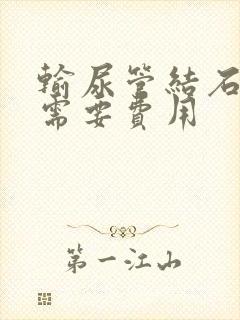 輸尿管結石
需要費用
第一江山